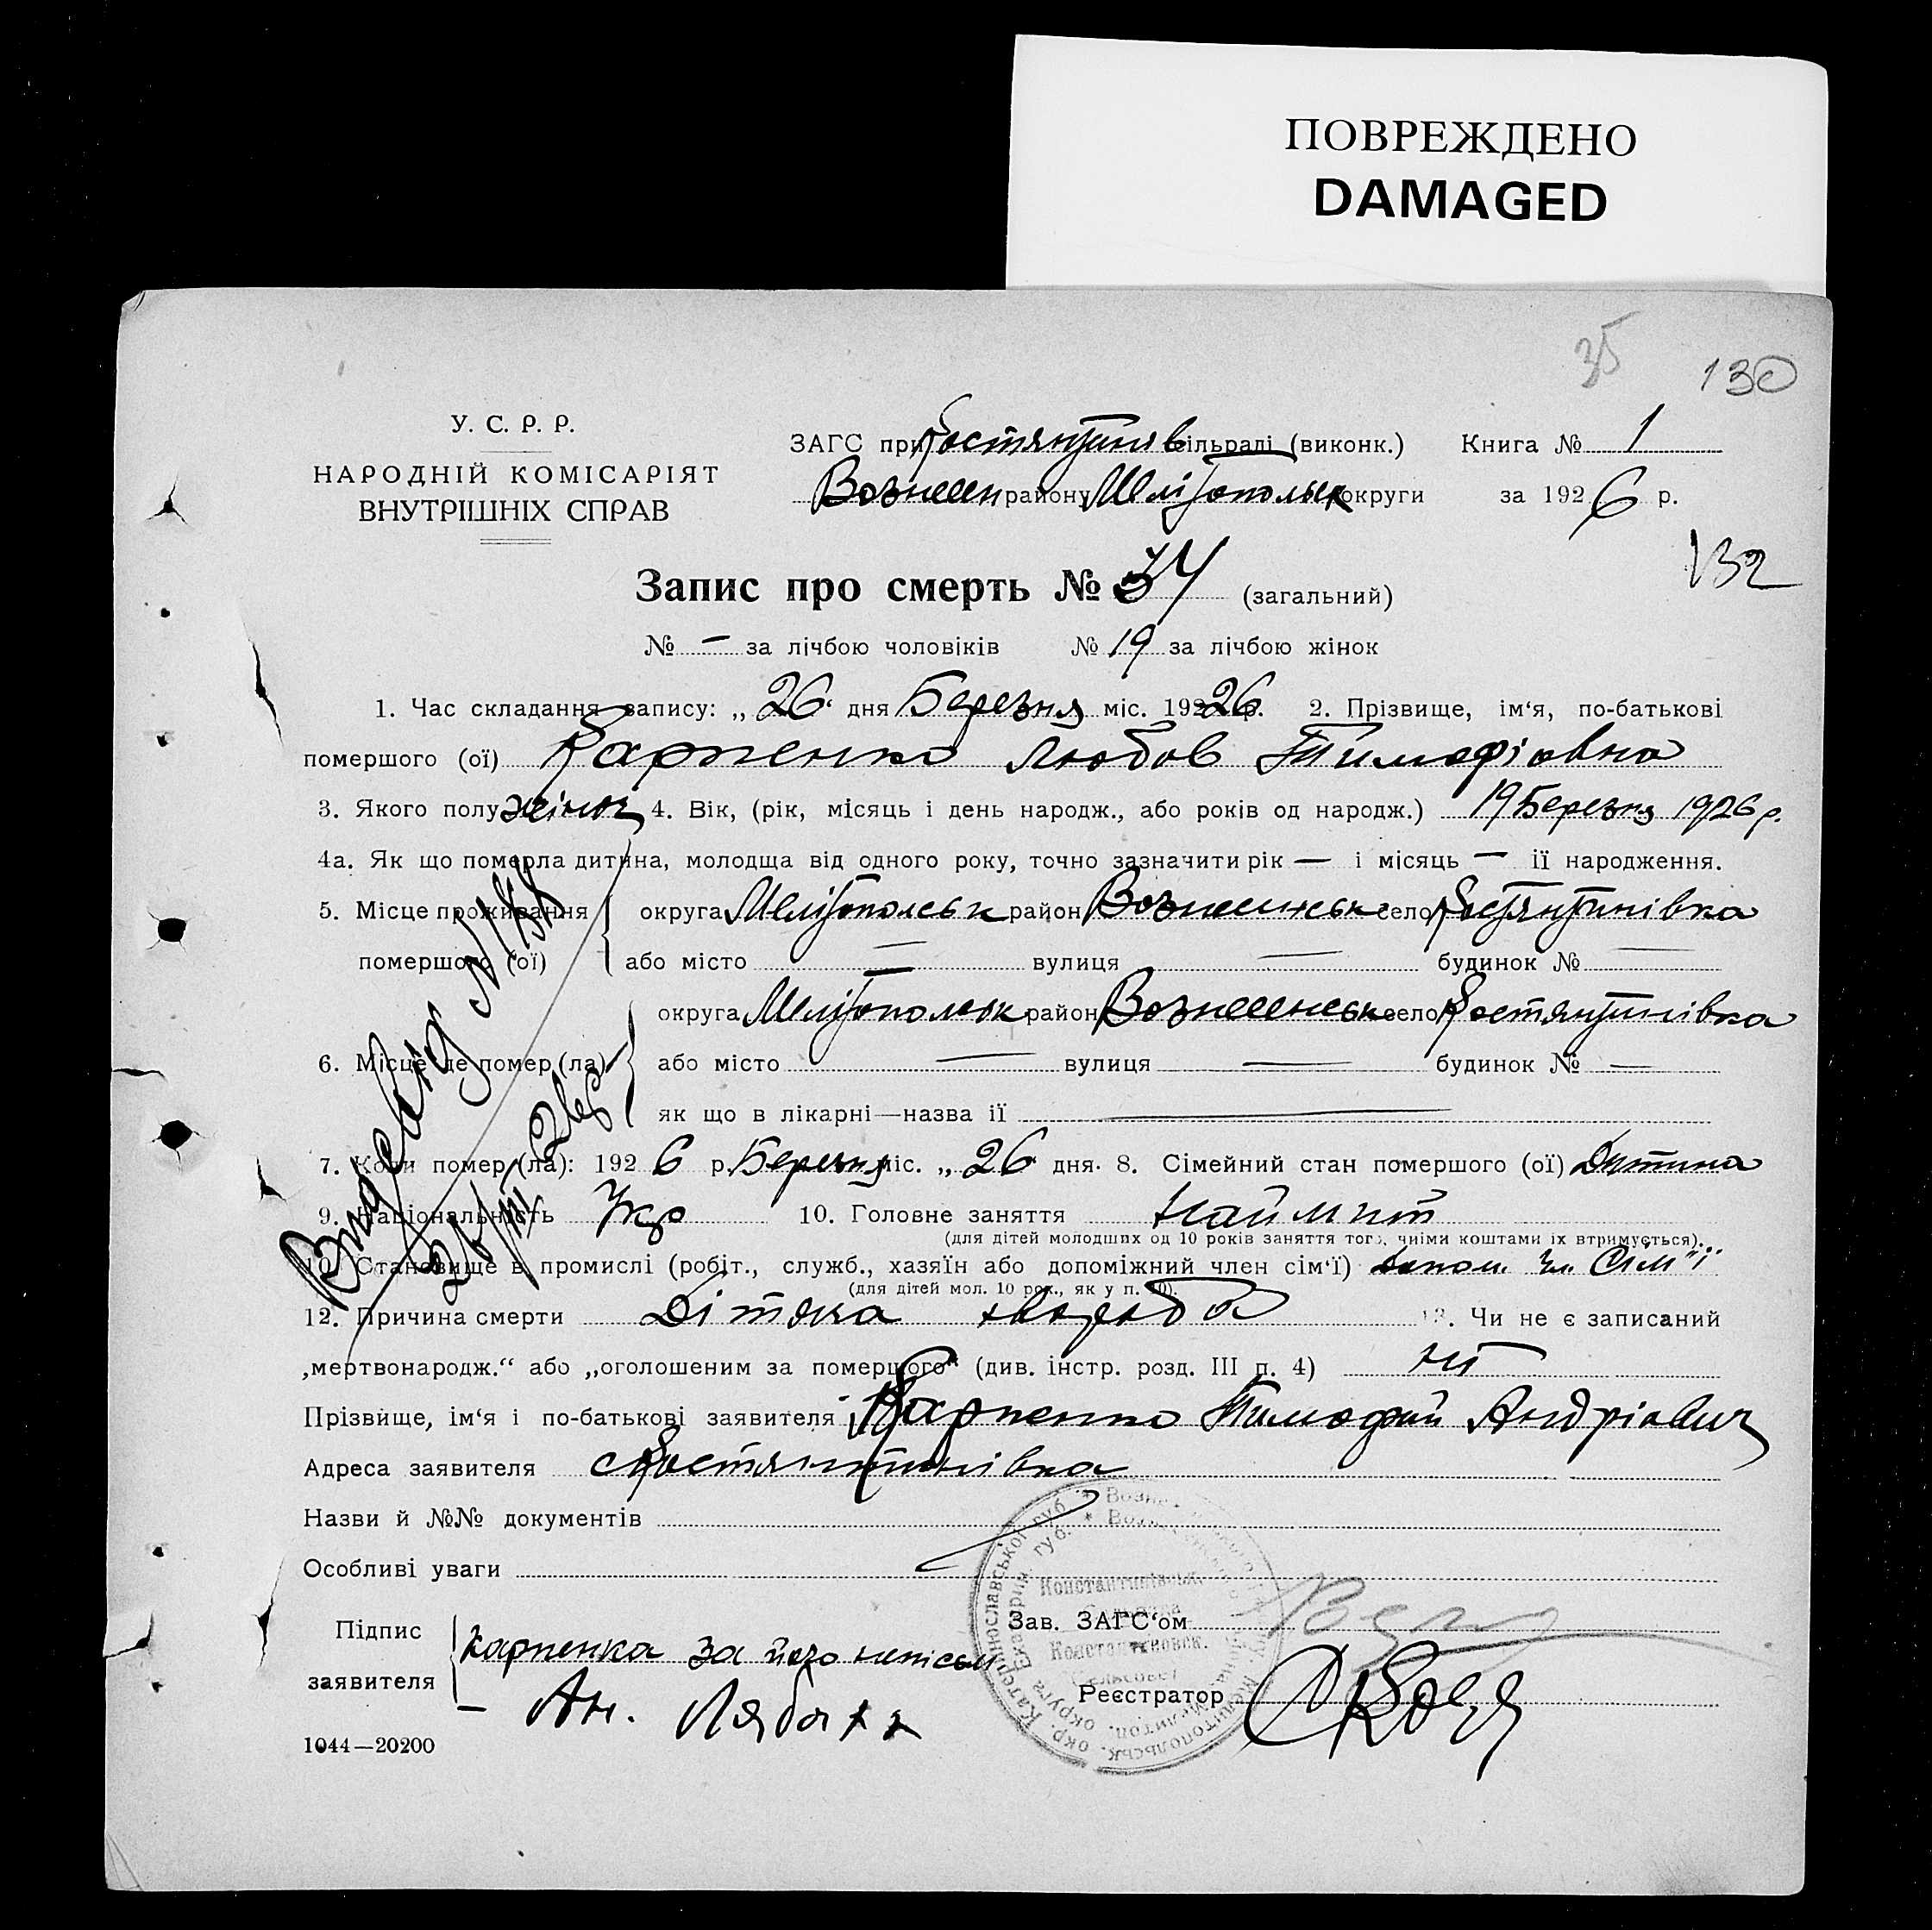 ПОВРЕЖДЕНО
DAMAGED
35 130
У. С. Р. Р.
НАРОДНІЙ КОМІСАРІЯТ
ВНУТРІШНІХ СПРАВ
ЗАГС при Костянтинів сільраді (виконк.) Книга № 1
Вознесен району Мелітопольск округи за 1926 р.
132
Запис про смерть № 34 (загальний)
№ — за лічбою чоловіків № 19 за лічбою жінок
1. Час складання запису: „ 26 дня Березня міс. 192 26 р. 2. Прізвище, ім‘я, по-батькові
помершого (ої) Карпенко Любов Тимофіовна
3. Якого полу жіноч 4. Вік, (рік, місяць і день народж., або років од народж.) 19 Березня 1926 р.
4а. Як що померла дитина, молодща від одного року, точно зазначити рік — і місяць — її народження.
5. Місце проживання округа Мелітопольск район Вознесенськ село Костянтинівка
помершого (ої) або місто — вулиця — будинок № —
округа Мелітопольск район Вознесенськ село Костянтинівка
6. Місце де помер (ла) або місто — вулиця — будинок № —
як що в лікарні—назва її —
7. Коли помер (ла): 1926 р. Березня міс. „ 26 дня. 8. Сімейний стан помершого (ої) Дитина
9. Національність Укр 10. Головне заняття Наймит
(для дітей молодших од 10 років заняття того, чиїми коштами їх втримується).
10. Становище в промислі (робіт., служб., хазяїн або допоміжний член сім‘ї) допом. чл. Сім"ї
(для дітей мол. 10 рок., як у п. 10).
12. Причина смерти Дітяча хвороба 13. Чи не є записаний
„мертвонародж.“ або „оголошеним за помершого“ (див. інстр. розд. III п. 4) ні
Прізвище, ім‘я і по-батькові заявителя Карпенко Тимофій Андріович
Адреса заявителя с Костянтинівка
Назви й №№ документів
Особливі уваги
Підпис
заявителя
Карпенка за його непісьм
— Ан. Лябах
Зав. ЗАГС‘ом
Реєстратор
1044—20200